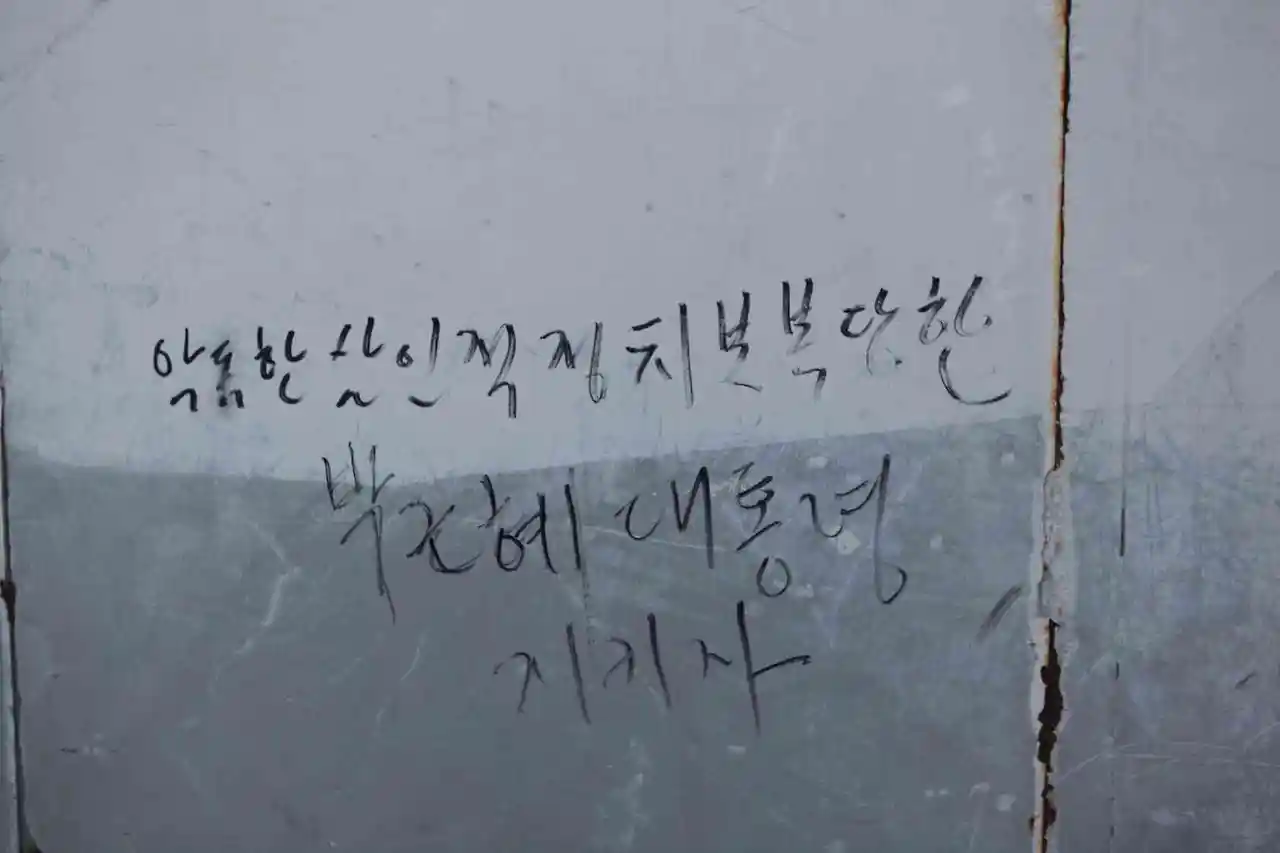 악독한 살인적 정치보복 당한
박근혜 대통령
지지자